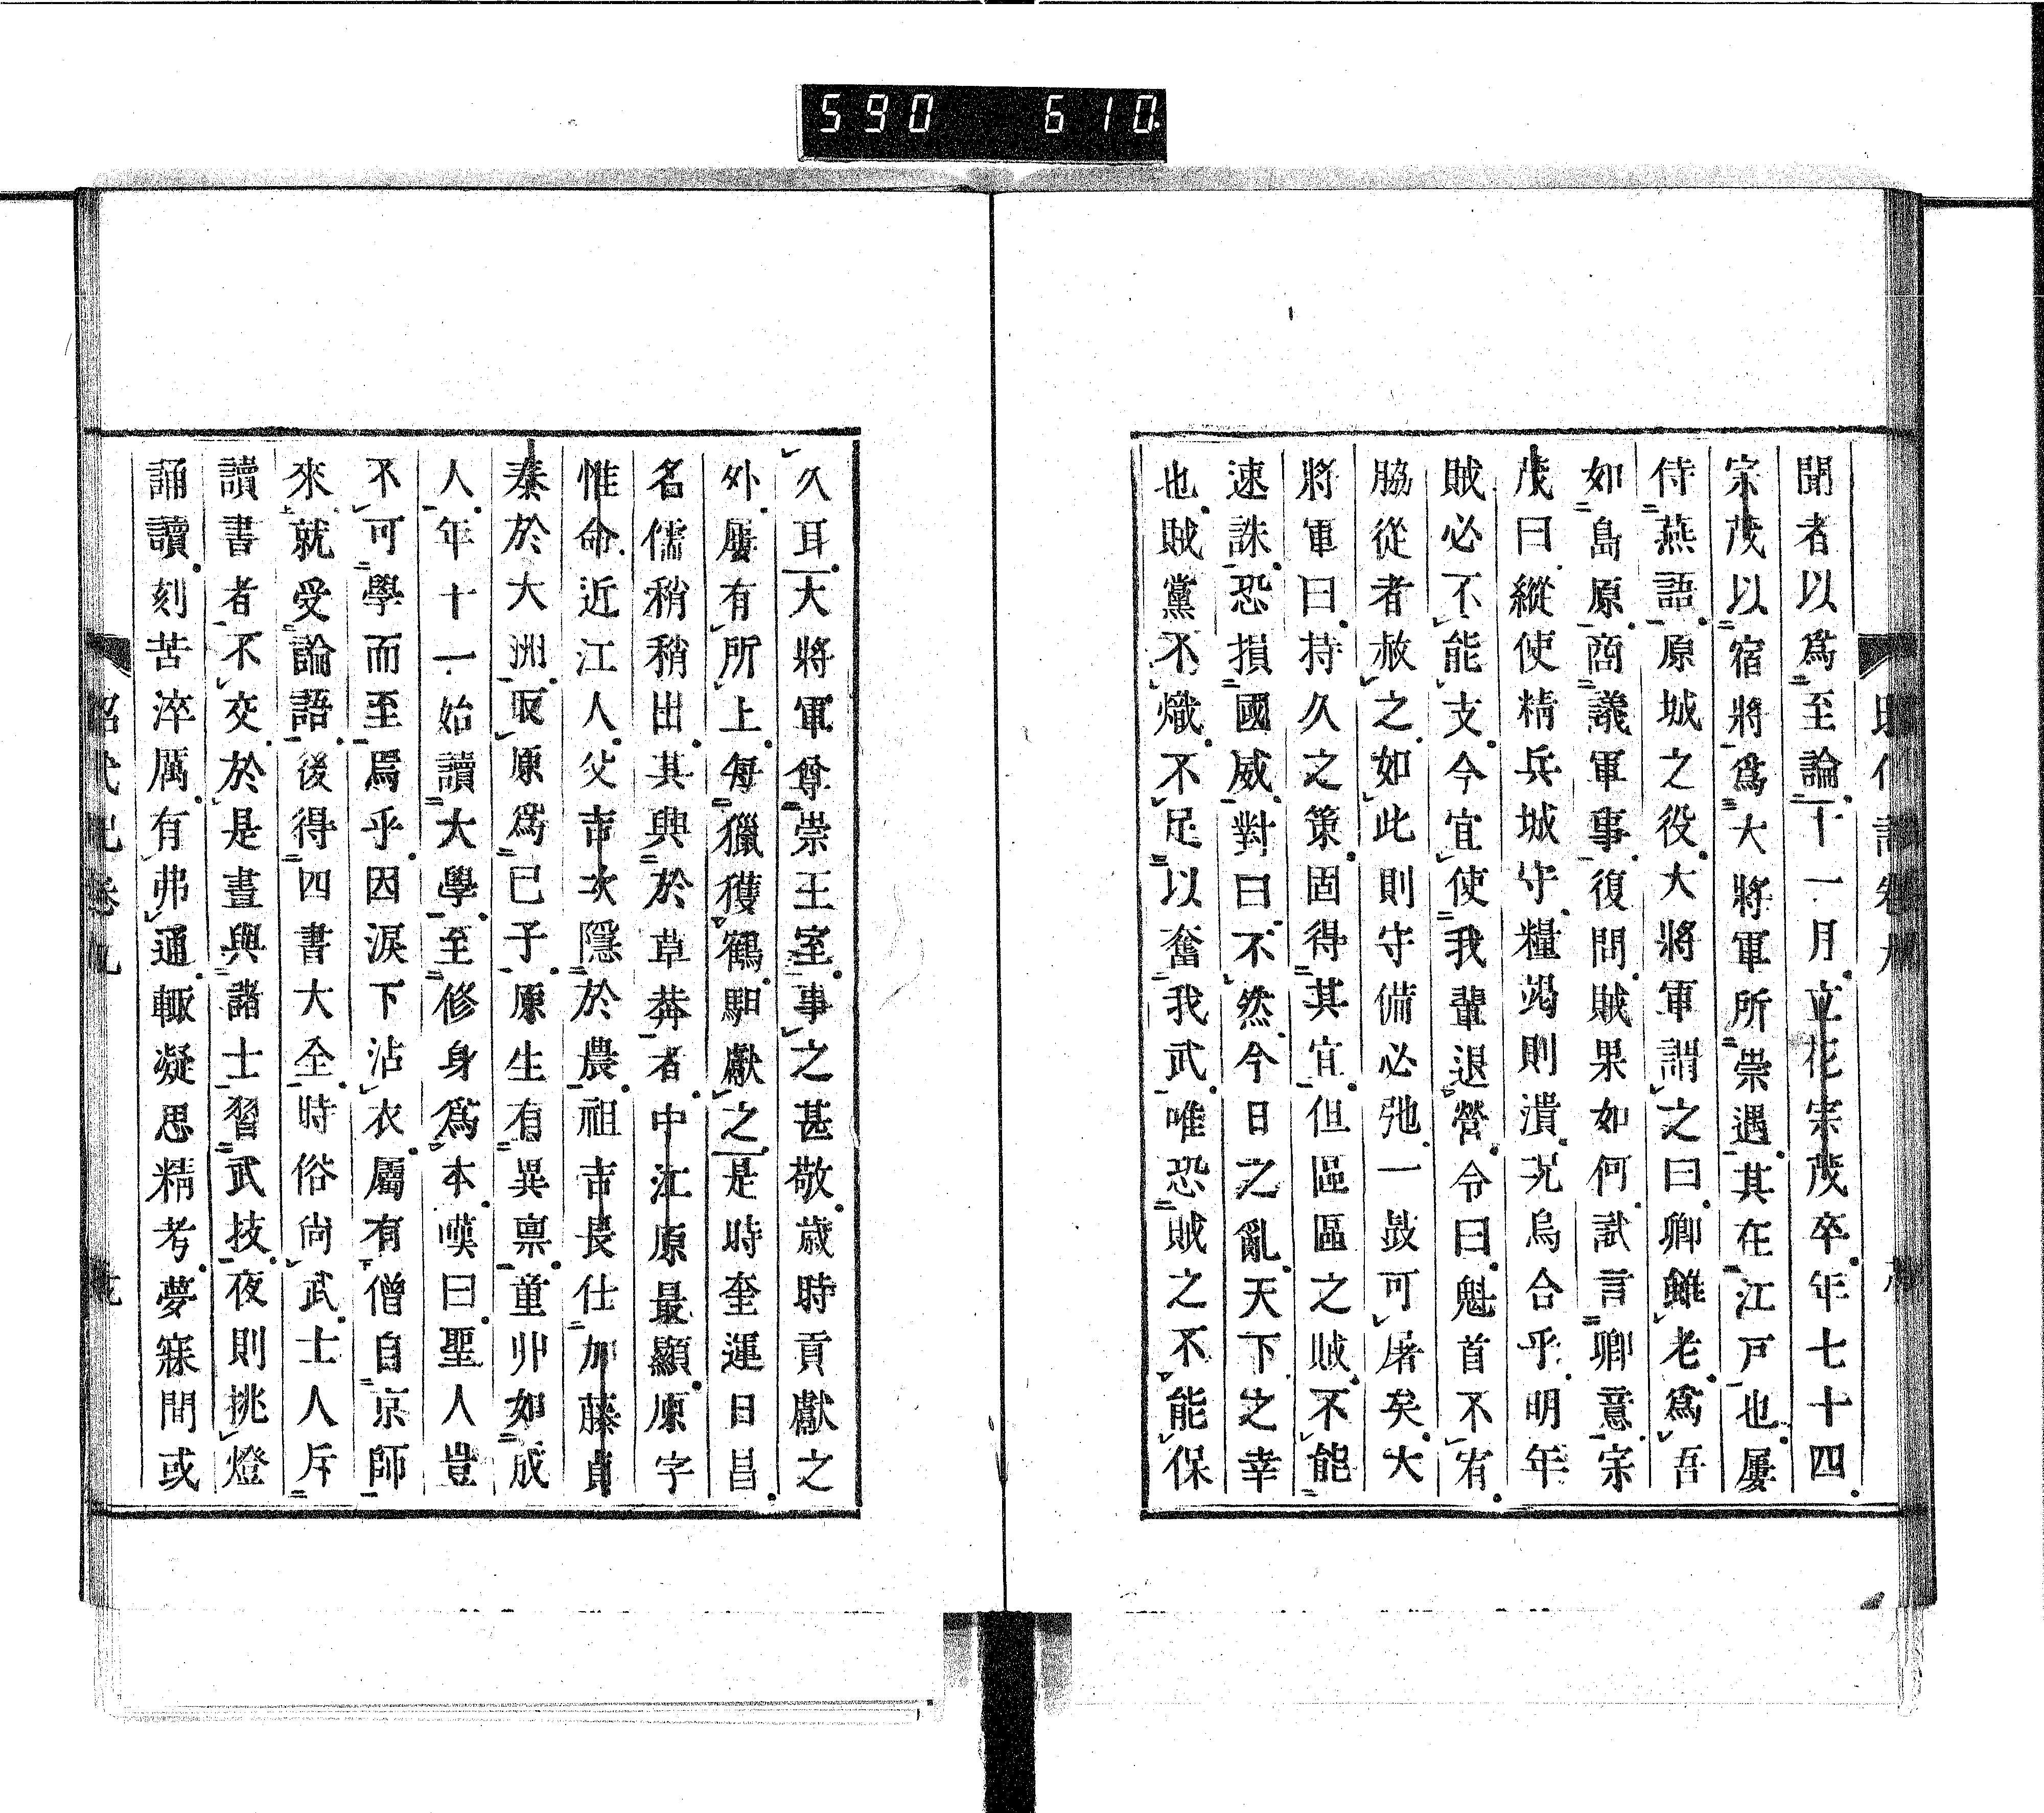 590 610
聞者以爲至論十一月立花宗茂卒年七十四
宗茂以宿將爲大將軍所崇遇其在江戸也屢
侍燕語原城之役大將軍謂之曰卿雖老爲吾
如島原商議軍事復問賊果如何試言卿意宗
茂曰縱使精兵城守糧竭則潰况烏合乎明年
賊必不能支今宜使我輩退營令曰魁首不宥
脇從者赦之如此則守備必弛一鼓可屠矣大
將軍曰持久之策固得其宜但區區之賊不能
速誅恐損國威對曰不然今日之亂天下之幸
也賊黨不熾不足以奮我武唯恐賊之不能保
久耳大將軍尊崇王室事之甚敬歲時貢獻之
外屢有所上每獵獲鶴馹獻之是時奎運日昌
名儒稍稍出其興於草莽者中江原最顯原字
惟命近江人父吉次隱於農祖吉長仕加藤貞
泰於大洲取原爲已子原生有異禀童丱如成
人年十一始讀大學至修身爲本嘆曰聖人豈
不可學而至焉乎因淚下沾衣屬有僧自京師
來就受論語後得四書大全時俗尚武士人斥
讀書者不交於是晝與諸士習武技夜則挑燈
誦讀刻苦淬厲有弗通輙凝思精考夢寐間或